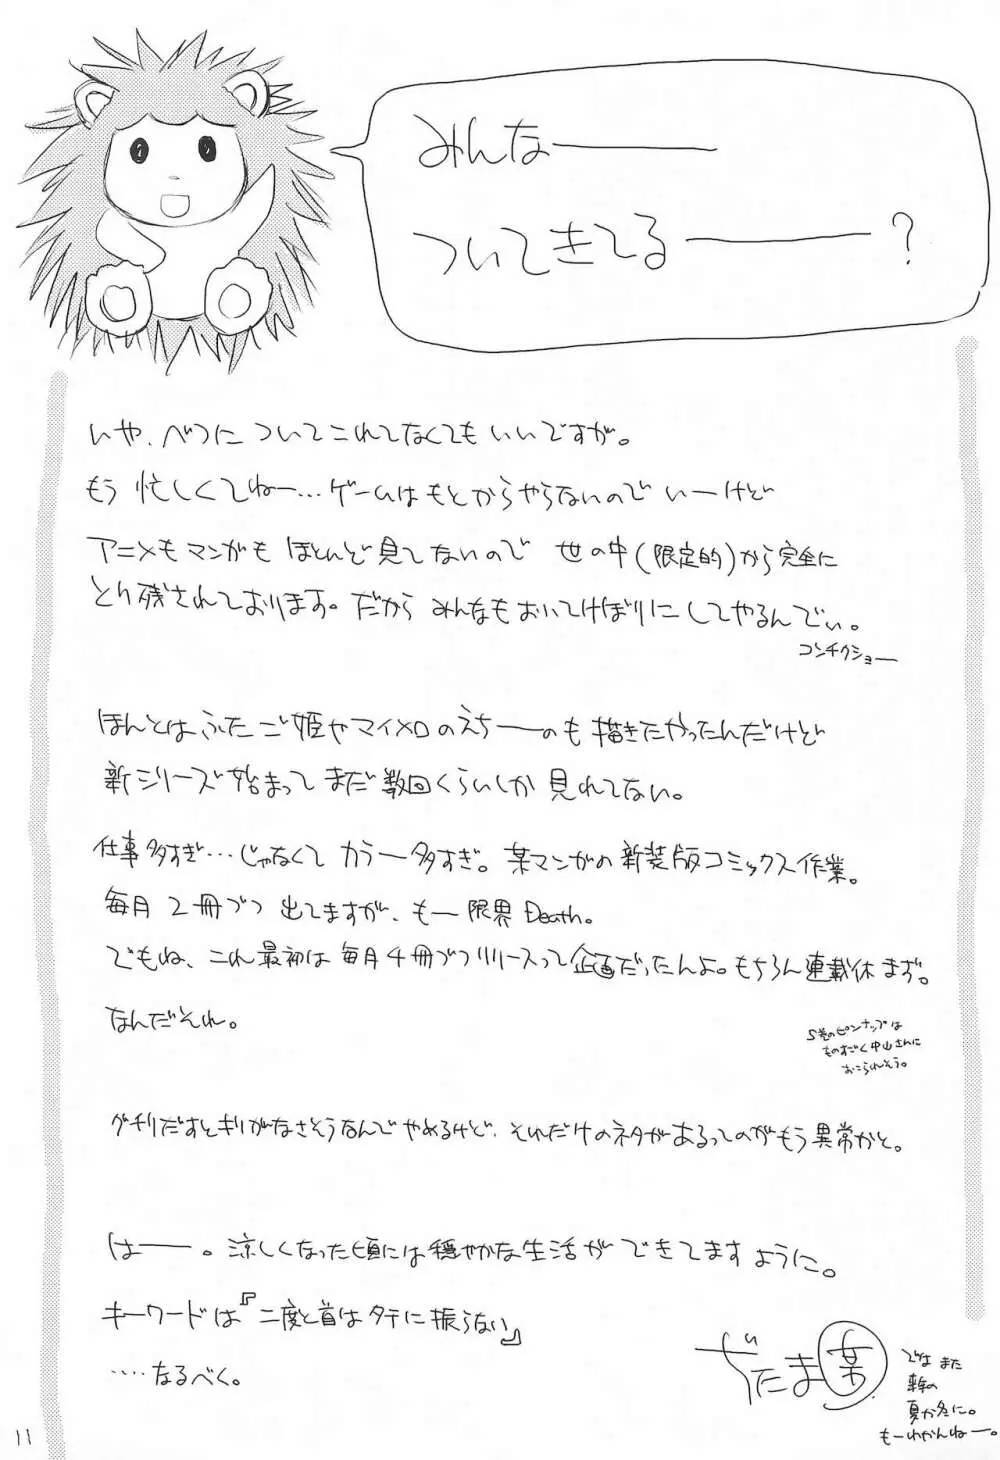 みんな―――
ついてきてる―――?
いや、べつについてこれてなくてもいいですが。
もう忙しくてねー…ゲームはもとからやらないのでいーけど
アニメもマンガもほとんど見てないので 世の中(限定的)から完全に
とり残されております。だからみんなもおいてけぼりにしてやるんでぃ。
コンチクショー
ほんとはふたご姫やマイメロのえちーのも描きたかったんだけど
新シリーズ始まってまだ数回くらいしか見れてない。
仕事多すぎ…じゃなくてカラー多すぎ。某マンガの新装版コミックス作業。
毎月2冊づつ出てますが、もー限界Death。
でもね、これ最初は毎月4冊づつリリースって企画だったんよ。もちろん連載休まず。
なんだそれ。
5巻のピンナップは
ものすごく中山さんに
おこられそう。
グチりだすとキリがなさそうなんでやめるけど、それだけのネタがあるってのがもう異常かと。
はー―。涼しくなった頃には穏やかな生活ができてますように。
キーワードは『二度と首はタテに振らない』
‥‥なるべく。
ぢたま某
ではまた
来年の
夏か冬に。
もーわかんねー。
11